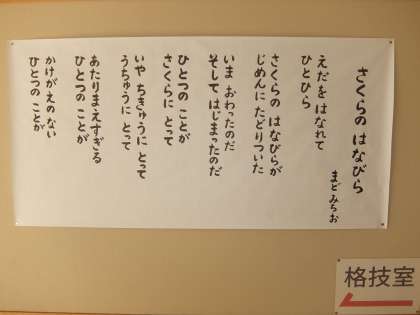 さくらの はなびら
まど みちお
えだを はなれて
ひとひら
さくらの はなびらが
じめんに たどりついた
いま おわったのだ
そして はじまったのだ
ひとつの ことが
さくらに とって
いや ちきゅうに とって
うちゅうに とって
あたりまえすぎる
ひとつの ことが
かけがえの ない
ひとつの ことが
格技室